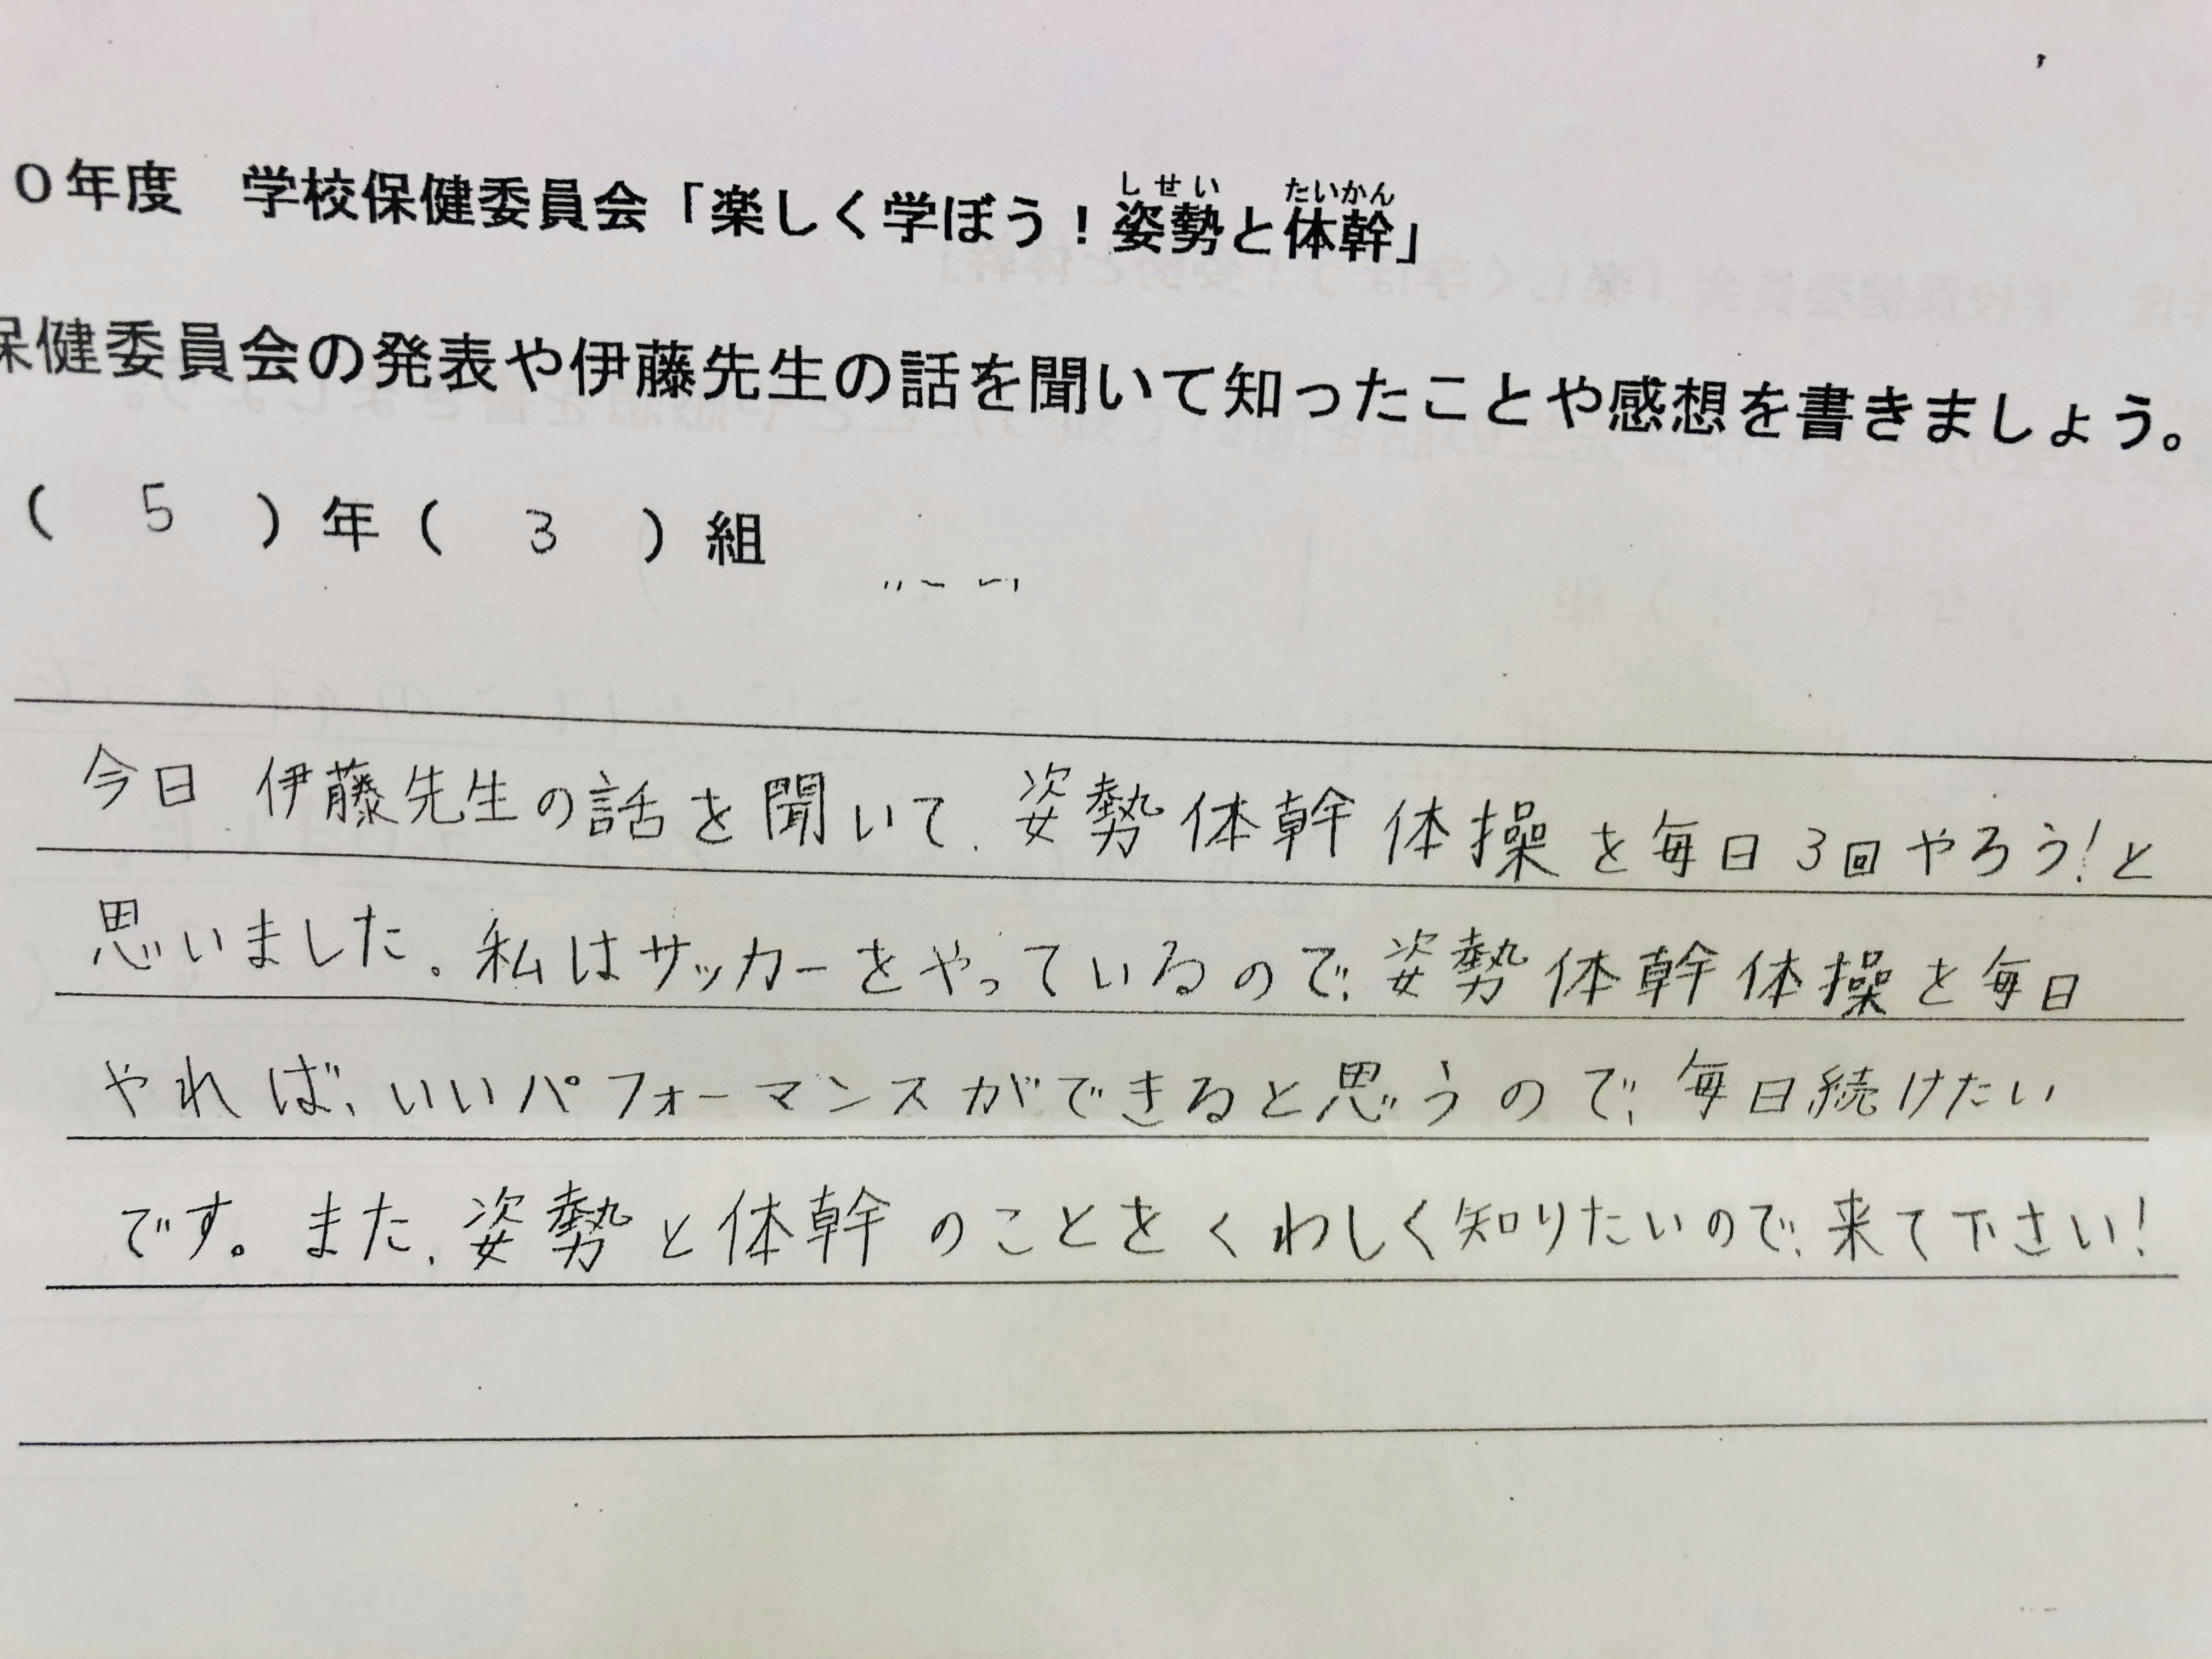 0年度 学校保健委員会「楽しく学ぼう！姿勢と体幹」
しせい たいかん
保健委員会の発表や伊藤先生の話を聞いて知ったことや感想を書きましょう。
( 5 )年( 3 )組
今日 伊藤先生の話を聞いて、姿勢体幹体操を毎日3回やろう!と
思いました。私はサッカーをやっているので、姿勢体幹体操を毎日
やれば、いいパフォーマンスができると思うので、毎日続けたい
です。また、姿勢と体幹のことをくわしく知りたいので、来て下さい!